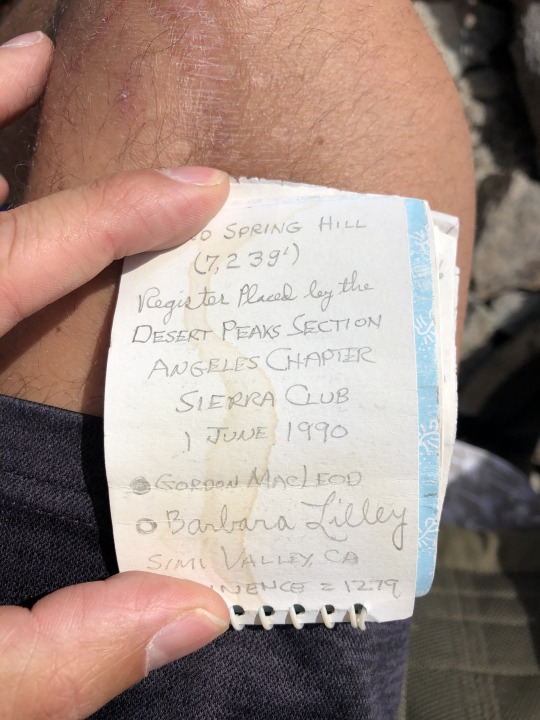 SPRING HILL
(7,239')
Register Placed by the
DESERT PEAKS SECTION
ANGELES CHAPTER
SIERRA CLUB
1 JUNE 1990
GORDON MACLEOD
Barbara Lilley
SIMI VALLEY, CA
= 1279